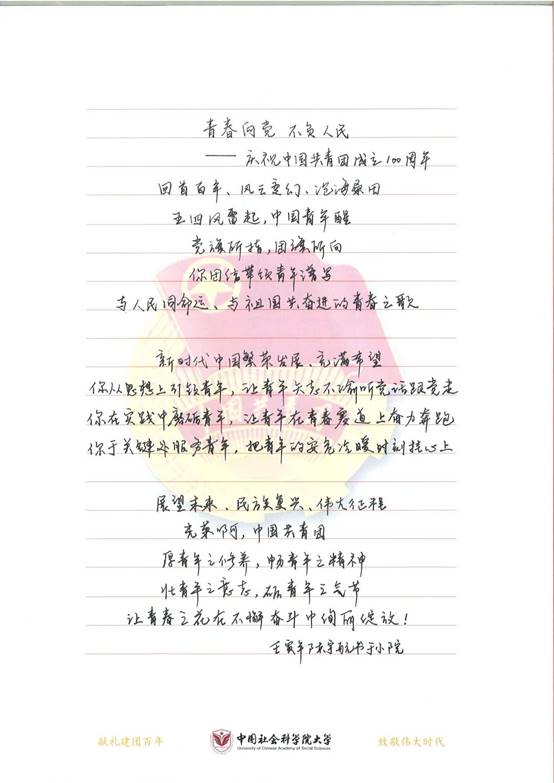 青春向党 不负人民
——庆祝中国共青团成立100周年
回首百年、风云变幻、沧海桑田
五四风雷起,中国青年醒
党旗所指,团旗所向
你团结带领青年谱写
与人民同命运、与祖国共奋进的青春之歌
新时代中国繁荣发展、充满希望
你从思想上引领青年,让青年矢志不渝听党话跟党走
你在实践中磨砺青年,让青年在青春赛道上奋力奔跑
你于关键处服务青年,把青年的安危冷暖时刻挂心上
展望未来、民族复兴、伟大征程
光荣啊,中国共青团
厚青年之修养,畅青年之精神
壮青年之意志,砺青年之气节
让青春之花在不懈奋斗中绚丽绽放!
壬寅年陈宇航书于小院
献礼建团百年
中国社会科学院大学
University of Chinese Academy of Social Sciences
致敬伟大时代